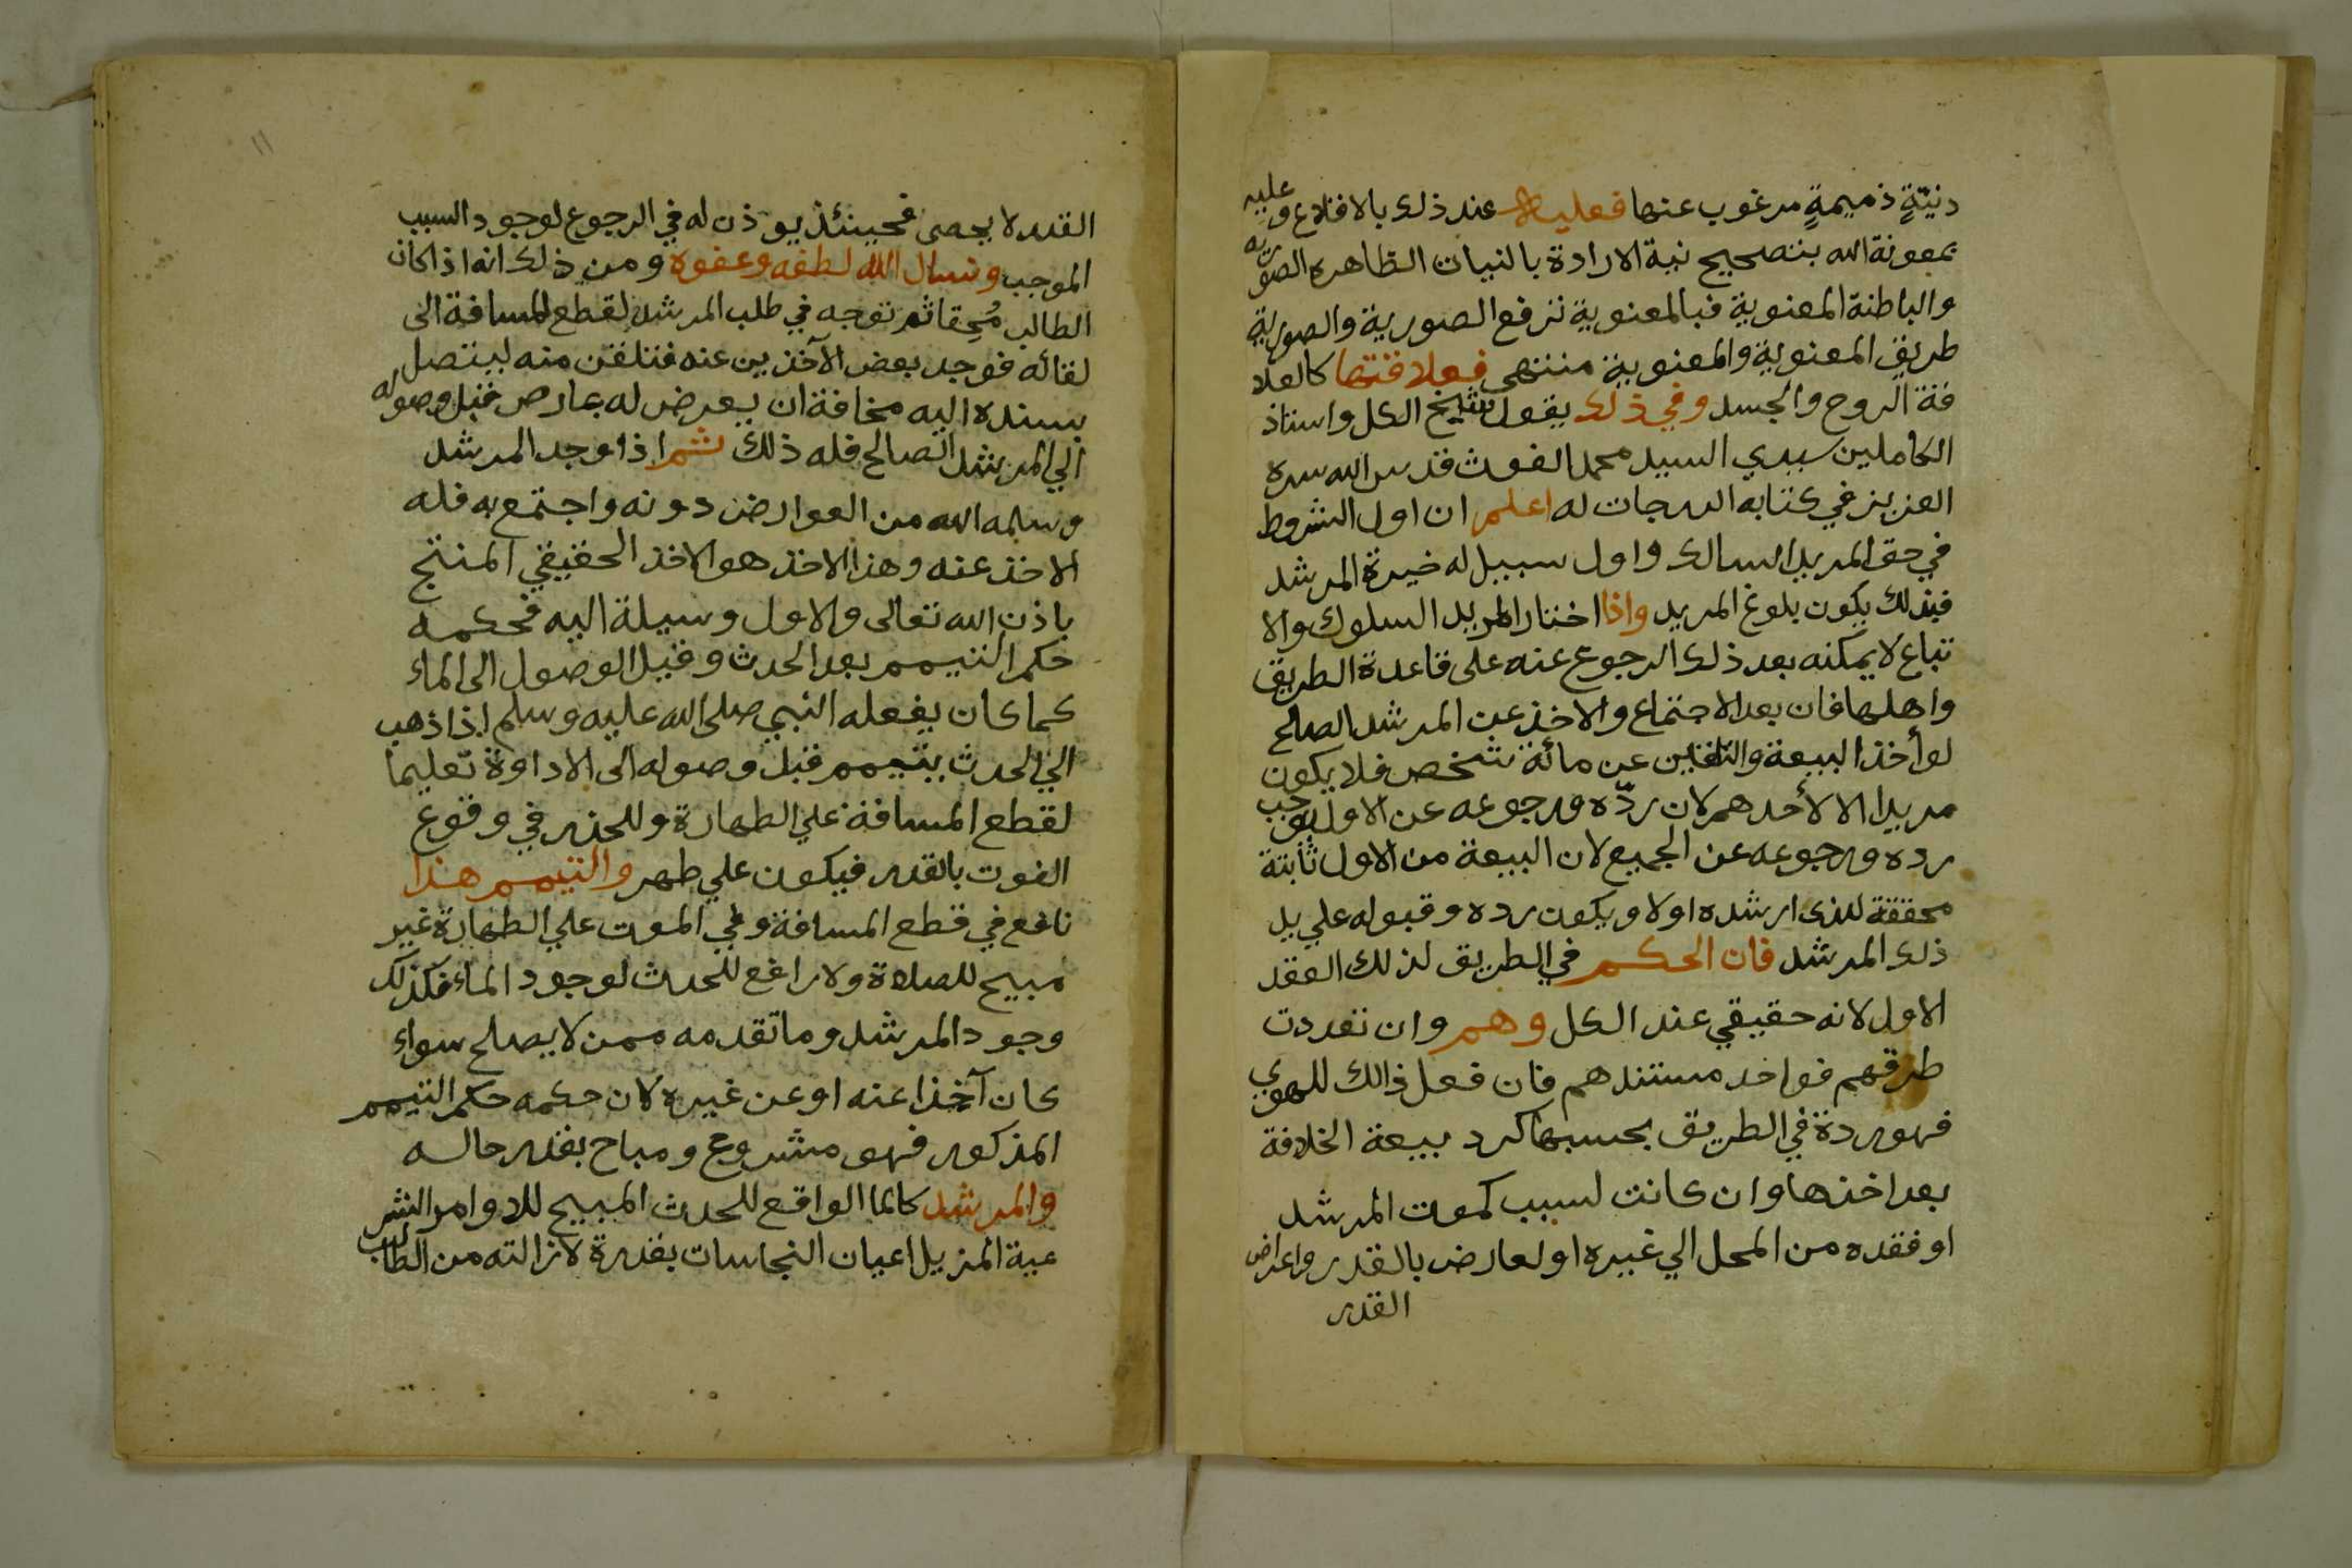 دنيّةٍ ذميمةٍ مرغوب عنها فعليه عند ذلك بالاقلاع وعليه
بمعونة الله بتصحيح نية الارادة بالنيات الظاهره الصوريه
والباطنة المعنوية فبالمعنوية ترفع الصورية والصورية
طريق المعنوية والمعنوية منتهى فعلاقتها كالعلا
قة الروح والجسد وفي ذلك يقول شيخ الكل واستاذ
الكاملين سيدي السيد محمد الغوث قدس الله سره
العزيز في كتابه الدرجات له اعلم ان اول الشروط
في حق المريد السالك واول سبيل له خيرة المرشد
فبذلك يكون بلوغ المريد واذا اختار المريد السلوك والا
تباع لا يمكنه بعد ذلك الرجوع عنه على قاعدة الطريق
واهلها فان بعد الاجتماع والاخذ عن المرشد الصالح
لو أخذ البيعة والتلقين عن مائة شخص فلا يكون
مريدا الا لأحدهم لان ردّه ورجوعه عن الاول يوجب
رده ورجوعه عن الجميع لان البيعة من الاول ثابتة
محققة للذى ارشده اولا ويكون رده وقبوله علي يد
ذلك المرشد فان الحكم في الطريق لذلك العقد
الاول لانه حقيقي عند الكل وهم وان تعددت
طرقهم فواحد مستندهم فان فعل ذالك للهوي
فهو ردة في الطريق بحسبها كرد بيعة الخلافة
بعد اخذها وان كانت لسبب كموت المرشد
او فقده من المحل الي غيره او لعارض بالقدر واعراض
القدر
١١
القدر لا يحصى فحينئذ يوذن له في الرجوع لوجود السبب
الموجب ونسال الله لطفه وعفوه ومن ذلك انه اذا كان
الطالب مُحِقا ثم توجه في طلب المرشد لقطع المسافة الى
لقائه فوجد بعض الآخذين عنه فتلقن منه ليتصل
بسنده اليه مخافة ان يعرض له عارض قبل وصوله
الي المرشد الصالح فله ذلك ثم اذا وجد المرشد
وسلمه الله من العوارض دونه واجتمع به فله
الاخذ عنه وهذا الاخذ هو الاخذ الحقيقي المنتج
باذن الله تعالى والاول وسيلة اليه فحكمه
حكم التيمم بعد الحدث وقبل الوصول الى الماء
كما كان يفعله النبي صلى الله عليه وسلم اذا ذهب
الي الحدث يتيمم قبل وصوله الى الاداوة تعليما
لقطع المسافة علي الطهارة وللحذر في وقوع
الفوت بالقدر فيكون علي طهر والتيمم هذا
نافع في قطع المسافة وفي الموت علي الطهارة غير
مبيح للصلاة ولا رافع للحدث لوجود الماء فكذلك
وجود المرشد وما تقدمه ممن لا يصلح سواء
كان آخذا عنه او عن غيره لان حكمه حكم التيمم
المذكور فهو مشروع ومباح بقدر حاله
والمرشد كالما الواقع للحدث المبيح للاوامر الشر
عية المزيل اعيان النجاسات بقدرة لازالته من الطالب